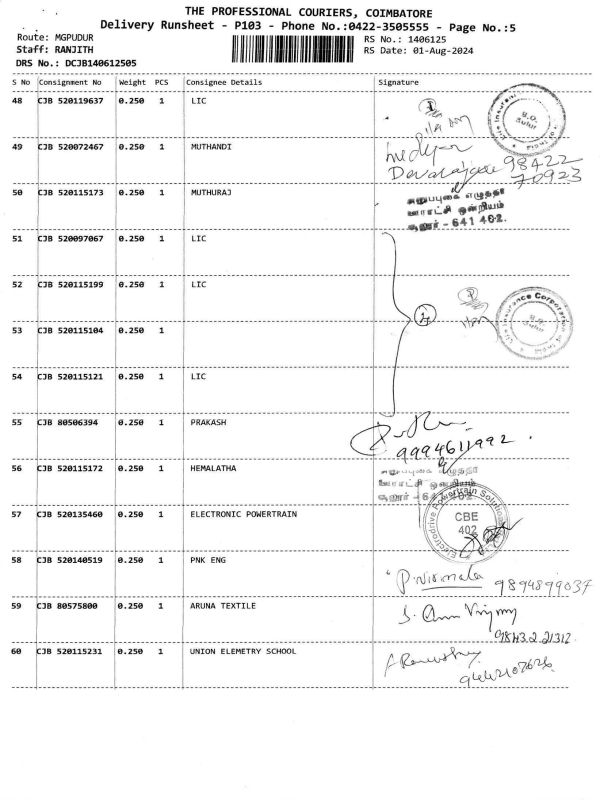 THE PROFESSIONAL COURIERS, COIMBATORE
Delivery Runsheet - P103 - Phone No.:0422-3505555 - Page No.:5
Route: MGPUDUR
RS No.: 1406125
Staff: RANJITH
RS Date: 01-Aug-2024
DRS No.: DCJB140612505
S No Consignment No Weight PCS Consignee Details Signature
48 CJB 520119637 0.250 1 LIC
S.O. Sulur
49 CJB 520072467 0.250 1 MUTHANDI
Devarajan 98422
70923
50 CJB 520115173 0.250 1 MUTHURAJ
ஊராட்சி ஒன்றியம்
சூலூர் - 641 402.
51 CJB 520097067 0.250 1 LIC
52 CJB 520115199 0.250 1 LIC
4
Life Insurance Corporation of India
S.O. Sulur
53 CJB 520115104 0.250 1
54 CJB 520115121 0.250 1 LIC
55 CJB 80506394 0.250 1 PRAKASH
9994611992
56 CJB 520115172 0.250 1 HEMALATHA
57 CJB 520135460 0.250 1 ELECTRONIC POWERTRAIN
Electrodrive Powertrain Solutions
CBE
402
58 CJB 520140519 0.250 1 PNK ENG
P.Nirmala 9894899037
59 CJB 80575800 0.250 1 ARUNA TEXTILE
60 CJB 520115231 0.250 1 UNION ELEMETRY SCHOOL